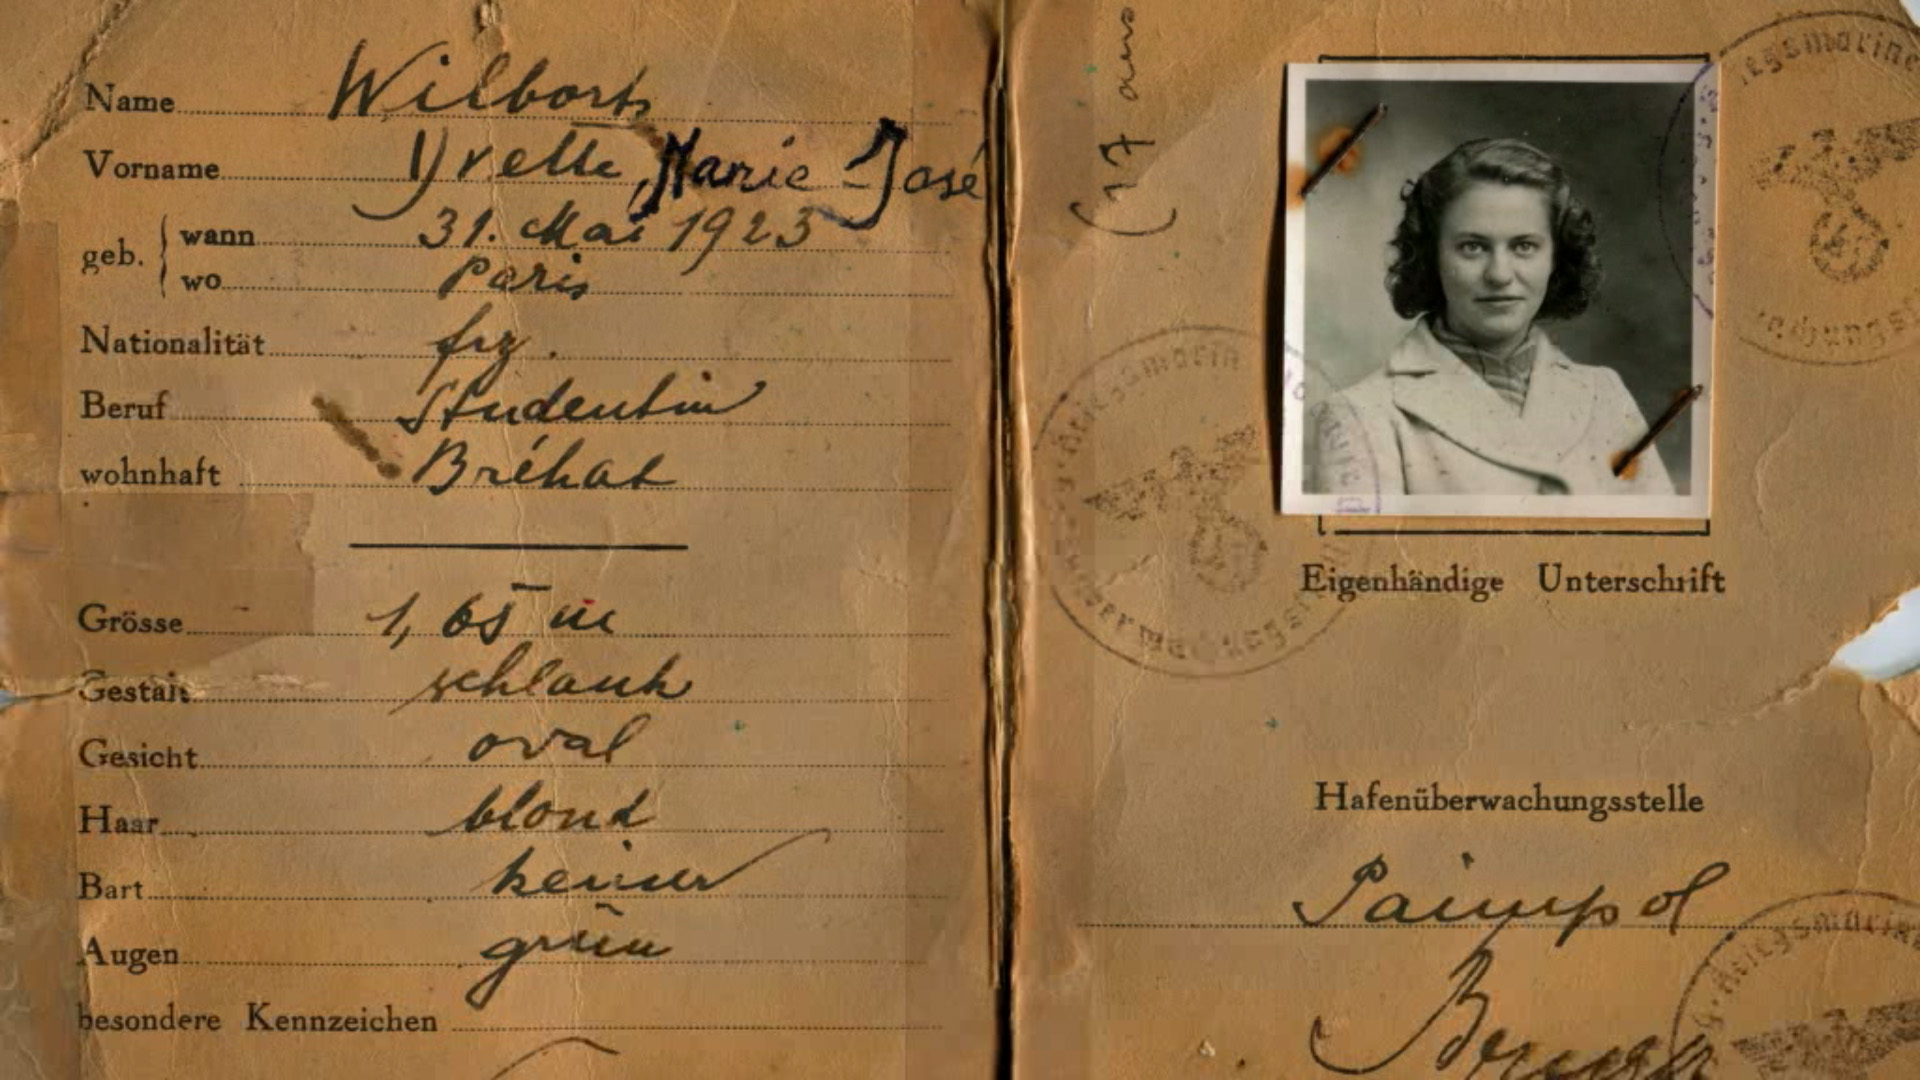 Name Wilborts
Vorname Yvette, Marie-José
geb. wann 31. Mai 1923
wo Paris
Nationalität frz.
Beruf Studentin
wohnhaft Bréhat
Grösse 1,65 m
Gestalt schlank
Gesicht oval
Haar blond
Bart keiner
Augen grün
besondere Kennzeichen
(17 ans
Kriegsmarine
Kriegsmarine
Eigenhändige Unterschrift
Hafenüberwachungsstelle
Paimpol
Kriegsmarine